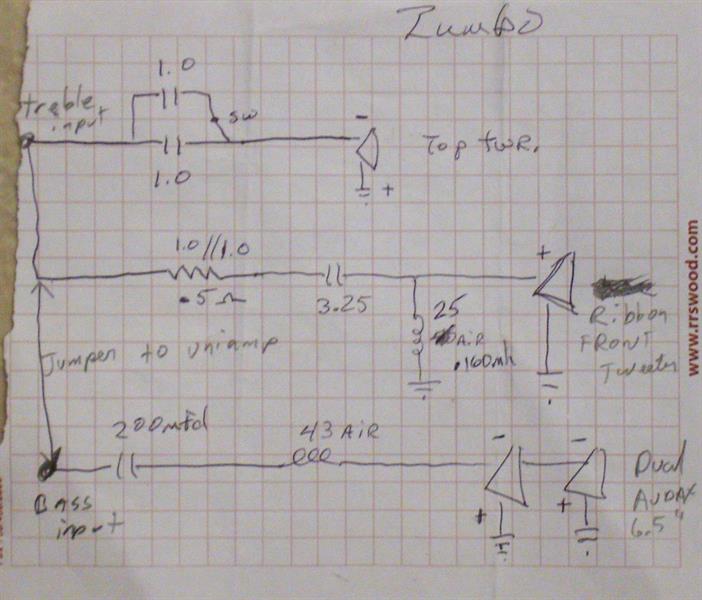 Zumbo
1.0
treble
input
sw
1.0
-
Top twr.
+
1.0//1.0
.5Ω
3.25
25
Air
.160mh
+
Ribbon
FRONT
Tweeter
Jumper to uniamp
200mfd
43 AIR
-
-
Dual
AUDAX
6.5"
+
+
Bass
input
www.rrswood.com